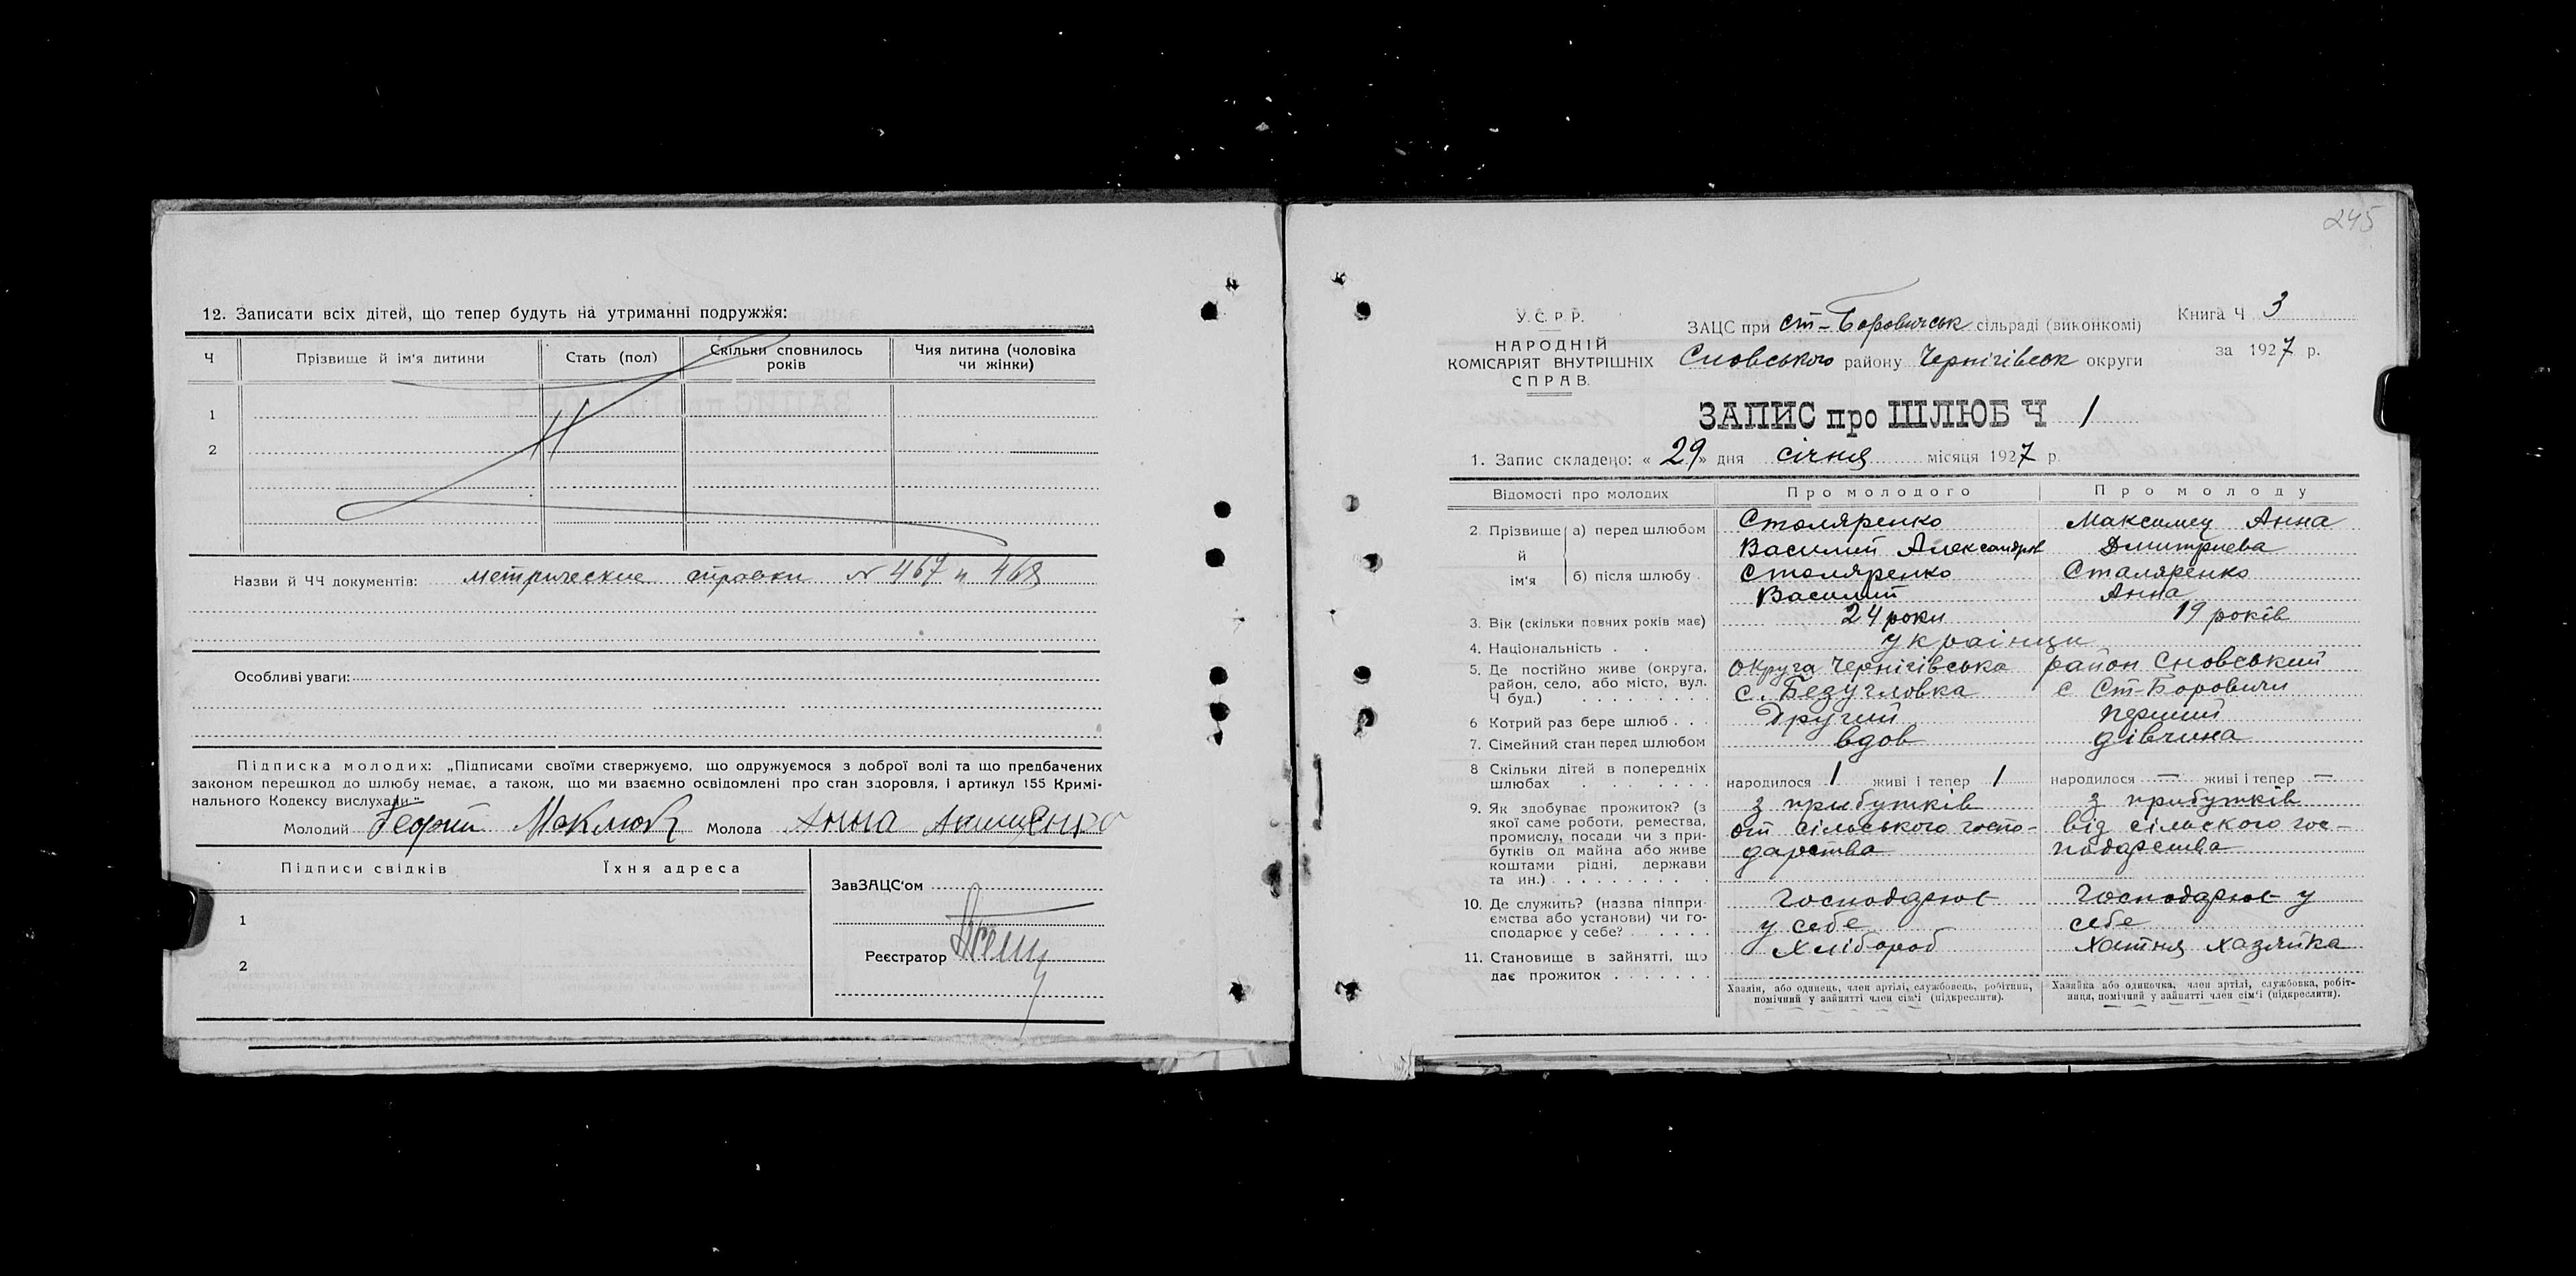 12. Записати всіх дітей, що тепер будуть на утриманні подружжя:
Ч
Прізвище й ім'я дитини
Стать (пол)
Скільки сповнилось років
Чия дитина (чоловіка чи жінки)
1
2
Назви й ЧЧ документів: метрические справки № 467 и 468
Особливі уваги:
Підписка молодих: „Підписами своїми стверджуємо, що одружуємося з доброї волі та що предбачених
законом перешкод до шлюбу немає, а також, що ми взаємно освідомлені про стан здоровля, і артикул 155 Кримі-
нального Кодексу вислухали"
Молодий Георгий Молода Анна
Підписи свідків
Їхня адреса
1
2
ЗавЗАЦС'ом
Реєстратор
245
У.С.Р.Р.
НАРОДНІЙ
КОМІСАРІЯТ ВНУТРІШНІХ
СПРАВ.
ЗАЦС при ст-Боровичськ сільраді (виконкомі)
Сновського району Чернігівськ округи
Книга Ч 3
за 1927 р.
ЗАПИС про ШЛЮБ Ч 1
1. Запис складено: « 29 » дня січня місяця 1927 р.
Відомості про молодих
Про молодого
Про молоду
2. Прізвище й ім'я
а) перед шлюбом
Столяренко
Василий Александров
Максимец Анна
Дмитриева
б) після шлюбу
Столяренко
Василий
Сталяренко
Анна
3. Вік (скільки повних років має)
24 роки
19 років
4. Національність
українци
5. Де постійно живе (округа,
район, село, або місто, вул.
Ч буд.)
округа Чернігівська район Сновський
с. Безугловка
с Ст-Боровичи
6 Котрий раз бере шлюб
Другий
перший
7. Сімейний стан перед шлюбом
вдов
дівчина
8 Скільки дітей в попередніх
шлюбах
народилося 1 живі і тепер 1
народилося — живі і тепер —
9. Як здобуває прожиток? (з
якої саме роботи, ремества,
промислу, посади чи з при-
бутків од майна або живе
коштами рідні, держави
та ин.)
з прибутків
от сільського госпо-
дарства
з прибутків
від сільского гос-
подарства
10. Де служить? (назва підпри-
ємства або установи) чи го-
сподарює у себе?
Господарює
у себе
Господарює у
себе
11. Становище в зайнятті, що
дає прожиток
Хлібороб
Хатня хазяйка
Хазяїн, або одинець, член артілі, службовець, робітник,
помічний у зайнятті член сім'ї (підкреслити).
Хазяйка або одиночка, член артілі, службовка, робіт-
ниця, помічний у зайнятті член сім'ї (підкреслити).